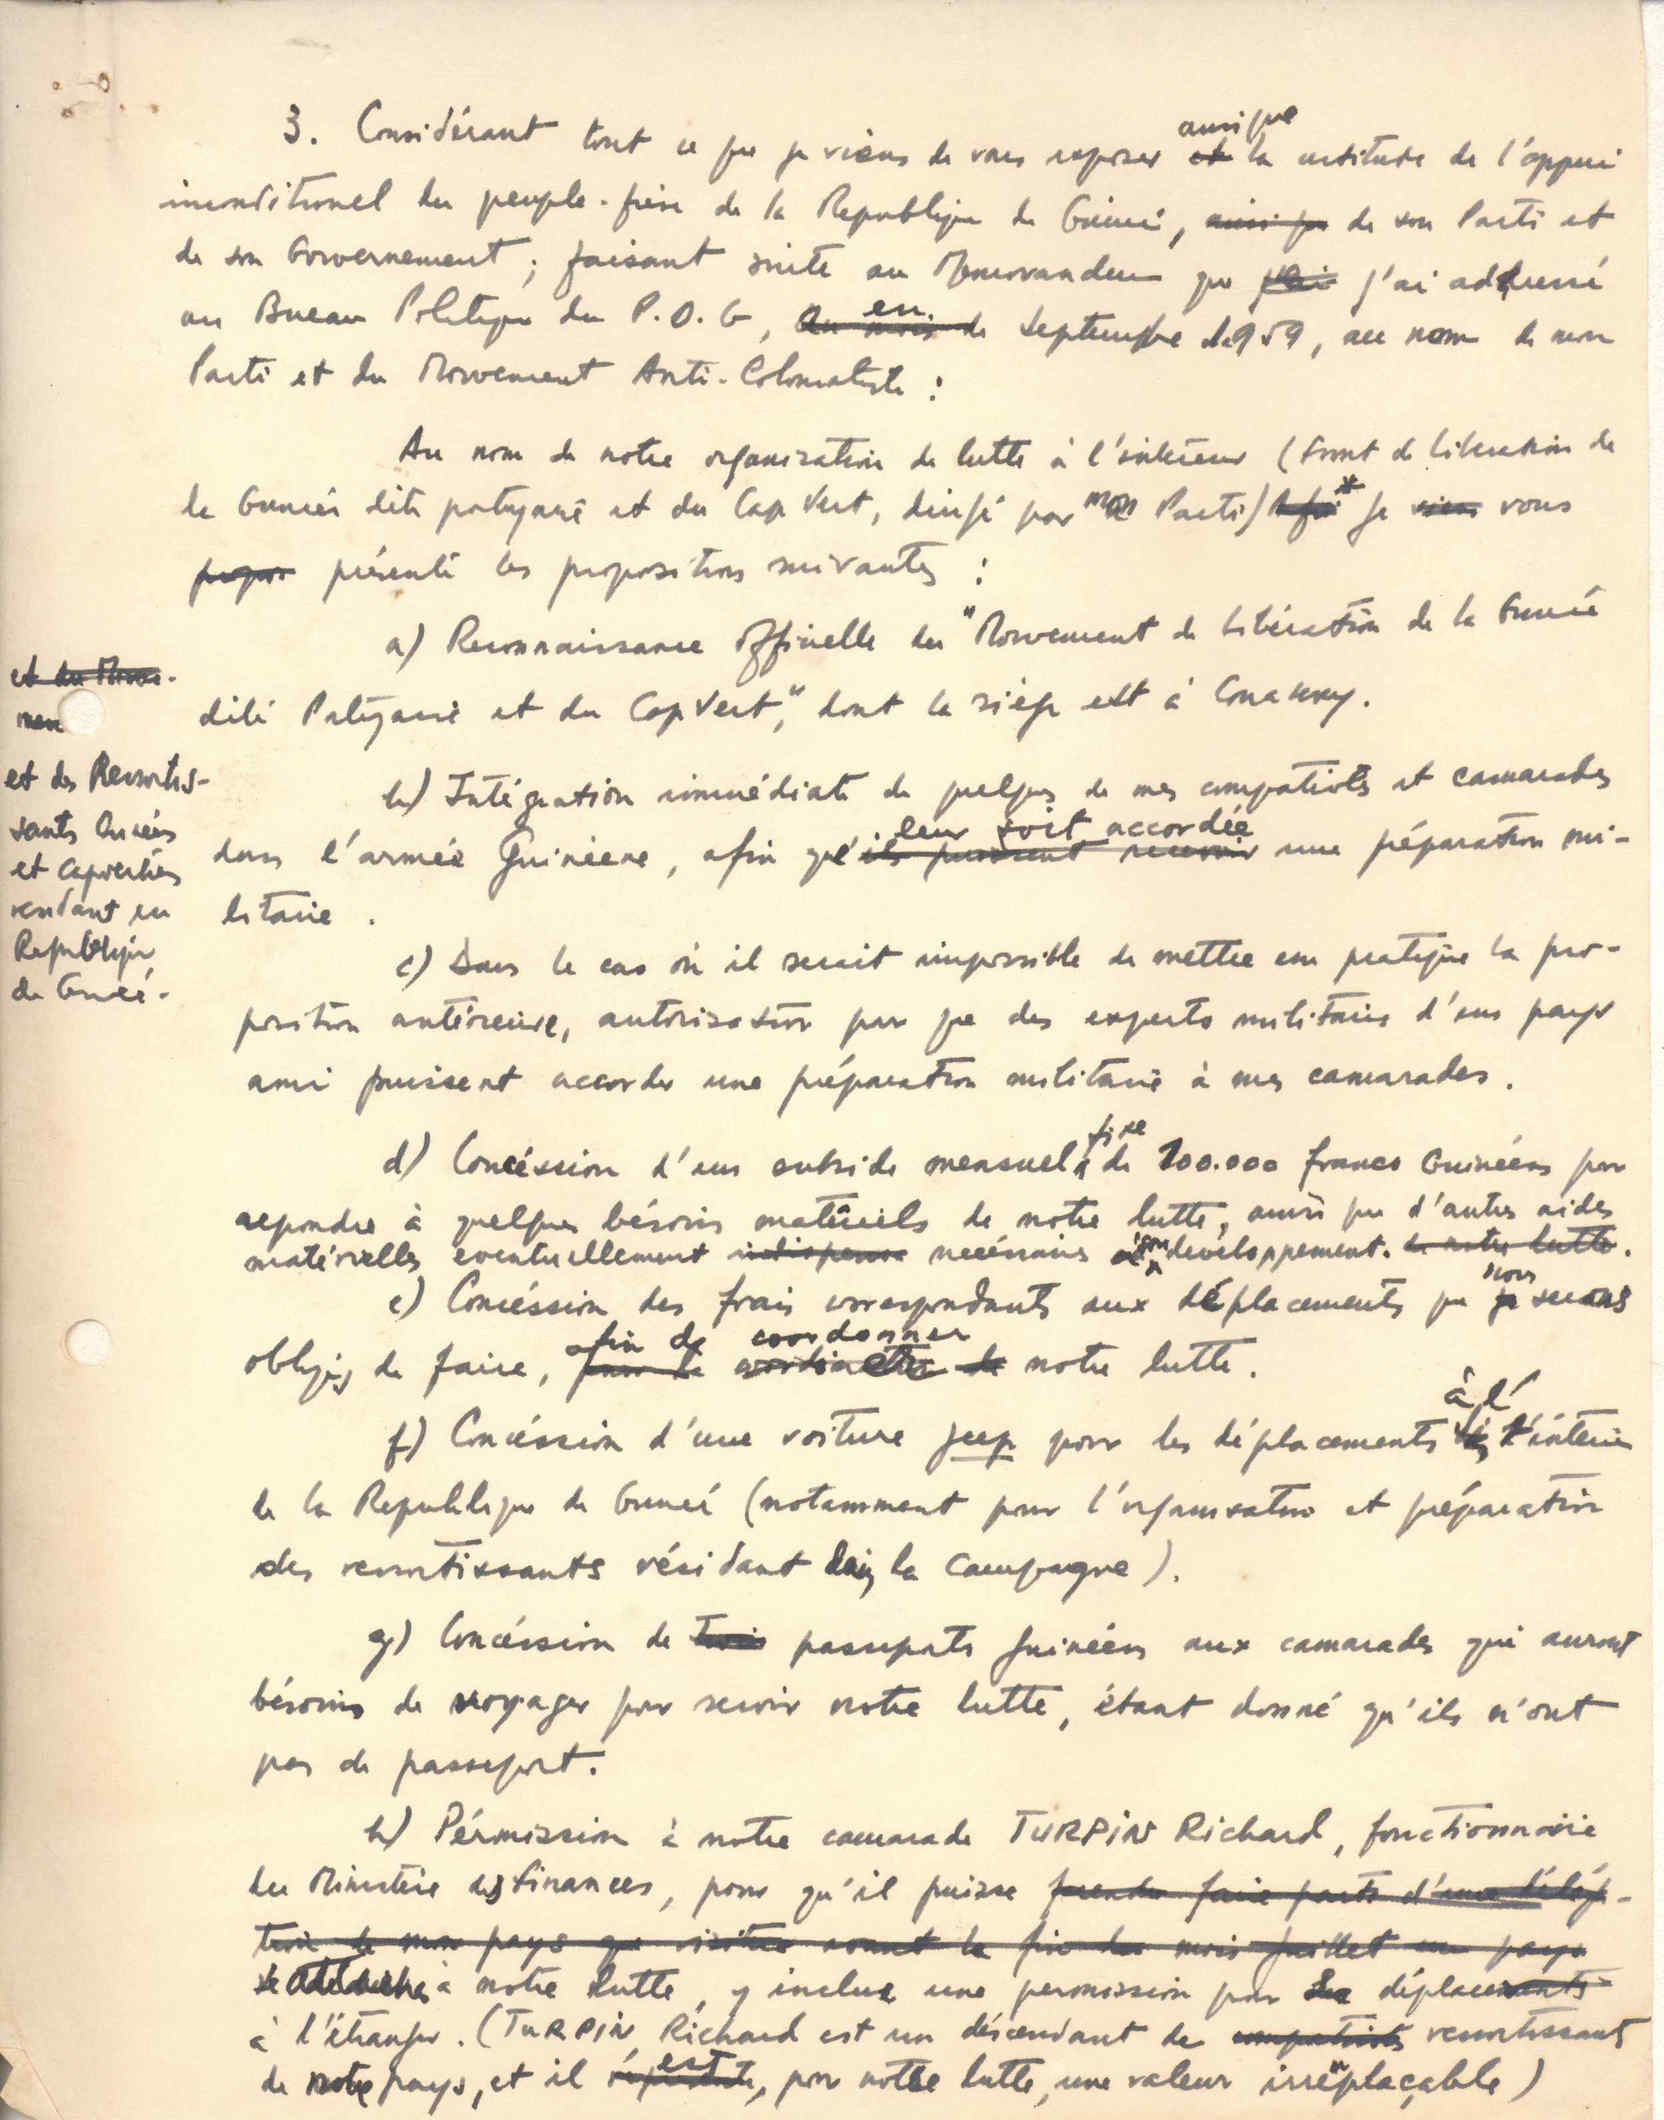 3. Considérant tout ce que je viens de vous exposer et ainsi que la certitude de l'appui
inconditionel du peuple-frère de la Republique de Guinée, ainsi que de son Parti et
de son Gouvernement; faisant suite au Memorandum que j'ai addressé
au Bureau Politique du P.D.G, au mois en de Septembre 1959, au nom de mon
Parti et du Mouvement Anti-Colonialiste:
Au nom de notre organisation de lutte à l'intérieur (Front de Libération de
la Guinée dite portugaise et du Cap Vert, dirigé par mon Parti) * je viens vous
présente les propositions suivantes:
a) Reconnaissance Officielle du "Mouvement de Libération de la Guinée
dite Portugaise et du Cap Vert", dont le siège est à Conakry.
et du Mouve-
ment
et des Ressortis-
sants Guinéens
et Capverdiens
residant en
Republique
de Guinée.
b) Intégration immédiate de quelques de mes compatriotes et camarades
dans l'armée Guinéene, afin qu'ils puissent recevoir leur soit accordée une préparation mi-
litaire.
c) Dans le cas où il serait impossible de mettre em pratique la pro-
position antérieure, autorisation pour que des experts militaires d'un pays
ami puissent accorder une préparation militaire à mes camarades.
d) Concéssion d'un subside mensuel fixe de 100.000 francs Guinéens pour
repondre à quelques bésoins matériels de notre lutte, ainsi que d'autres aides
matérielles eventuellement necéssaires à son développement. de notre lutte.
e) Concéssion des frais correspondants aux déplacements que je nous serons
obligés de faire, pour la afin de coordonner notre lutte.
f) Concéssion d'une voiture jeep pour les déplacements à l'intérieur
de la Republique de Guinée (notamment pour l'organisation et préparation
des ressortissants résidant dans la Campagne).
g) Concéssion de trois passeports guinéens aux camarades qui auront
bésoins de voyager pour servir notre lutte, étant donné qu'ils n'ont
pas de passeport.
h) Pérmission à notre camarade TURPIN Richard, fonctionnaire
du Ministère des Finances, pour qu'il puisse prendre faire parts d'une délég-
tion de mon pays que visitera avant la fin du mois Juillet un pays
se à notre lutte, y inclue une permission pour déplacements
à l'étranger. (TURPIN Richard est un déscendant de compatriotes ressortissants
de notre pays, et il est, pour notre lutte, une valeur irremplaçable)